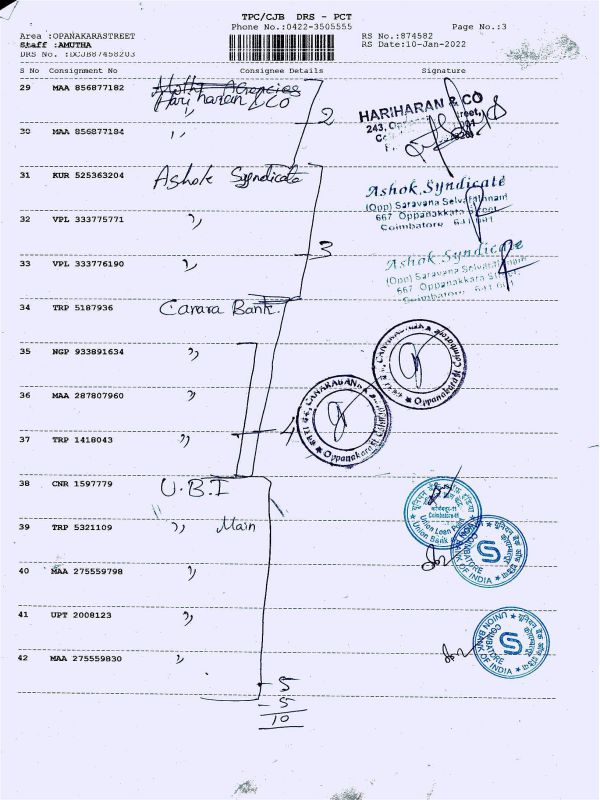 TPC/CJB DRS - PCT
Phone No.:0422-3505555
Page No.:3
Area :OPANAKARASTREET
RS No.:874582
Staff :AMUTHA
RS Date:10-Jan-2022
DRS No. :DCJB87458203
S No Consignment No Consignee Details Signature
29 MAA 856877182 Hari haran & CO
HARIHARAN & CO
2
30 MAA 856877184 "
31 KUR 525363204 Ashok Syndicate
Ashok Syndicate
(Opp) Saravana Selvarathnam
667 Oppanakkara Street,
Coimbatore 641 001
32 VPL 333775771 "
33 VPL 333776190 "
3
Ashok Syndicate
(Opp) Saravana Selvarathnam
667 Oppanakkara Street
34 TRP 5187936 Canara Bank.
35 NGP 933891634 "
36 MAA 287807960 "
37 TRP 1418043 "
4
38 CNR 1597779 U.B.I
39 TRP 5321109 " Main
Union Loan Point
Union Bank
COIMBATORE
UNION BANK OF INDIA
40 MAA 275559798 "
41 UPT 2008123 "
COIMBATORE
UNION BANK OF INDIA
42 MAA 275559830 "
- 5
- 5
10